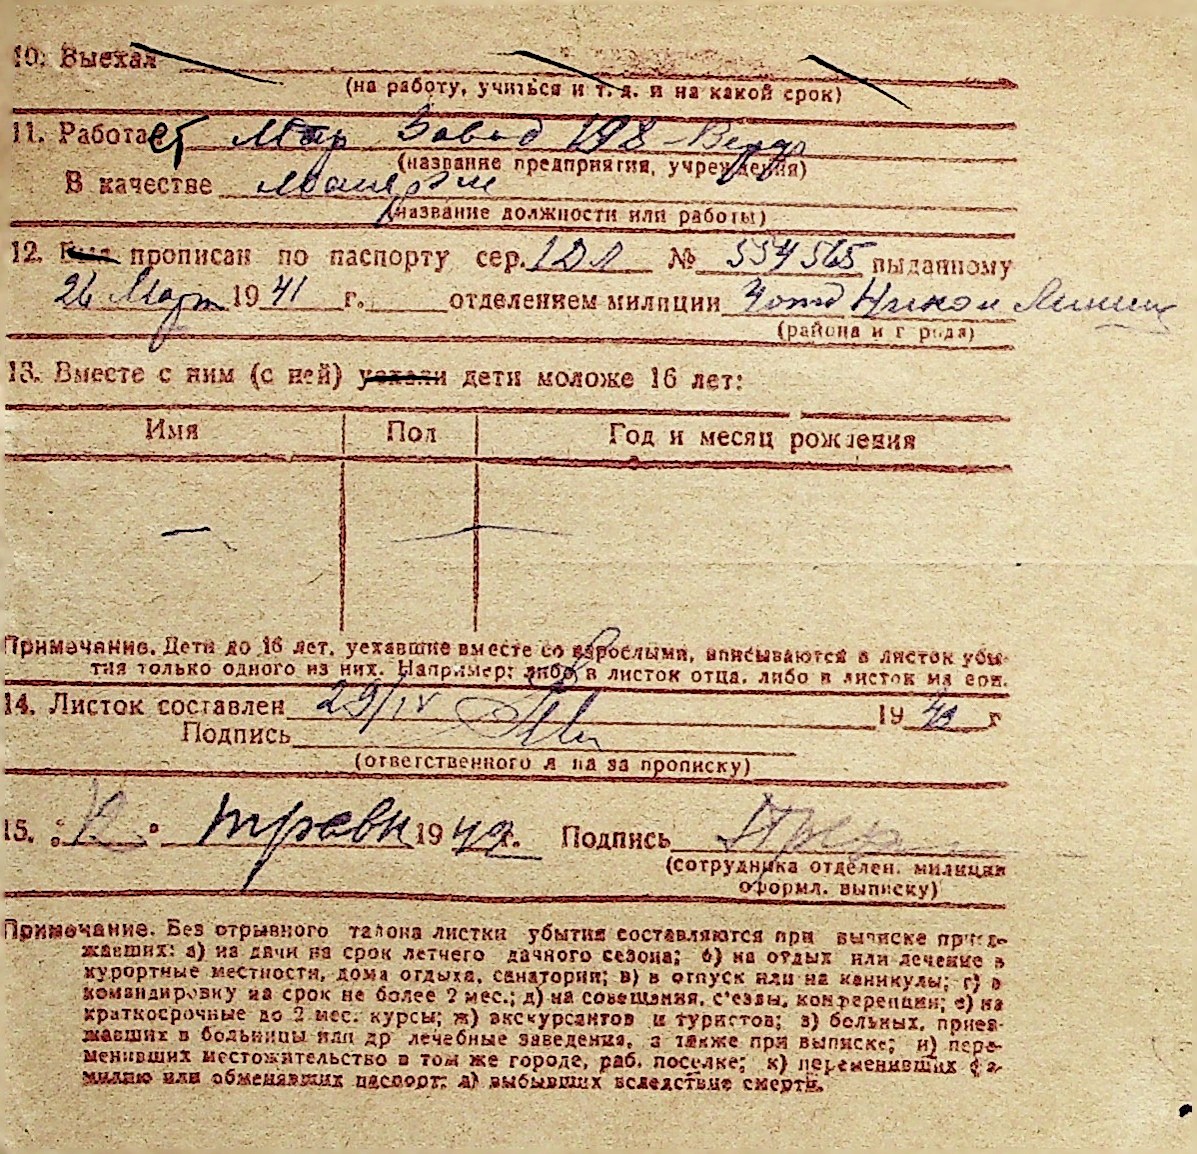 10. Выехал
(на работу, учиться и т. д. и на какой срок)
11. Работает Мар Завод 198
(название предприятия, учреждения)
В качестве маляром
(название должности или работы)
12. прописан по паспорту сер. IДЛ № 554565 выданному
26 Март 1941 г. отделением милиции
(района и г рода)
13. Вместе с ним (с ней) уехали дети моложе 16 лет:
Имя Пол Год и месяц рождения
— —
Примечание. Дети до 16 лет, уехавшие вместе со взрослыми, вписываются в листок убы-
тия только одного из них. Например: либо в листок отца, либо в листок ма ери.
14. Листок составлен 29/IV 19 г
Подпись
(ответственного л ца за прописку)
15. " " травн 194 г. Подпись
(сотрудника отделен. милиции
оформл. выписку)
Примечание. Без отрывного талона листки убытия составляются при выписке приез-
жавших: а) на дачи на срок летнего дачного сезона; б) на отдых или лечение в
курортные местности, дома отдыха, санатории; в) в отпуск или на каникулы; г) в
командировку на срок не более 2 мес.; д) на совещания, с'езды, конференции; е) на
краткосрочные до 2 мес. курсы; ж) экскурсантов и туристов; з) больных, приез-
жавших в больницы или др лечебные заведения, а также при выписке; и) пере-
менивших местожительство в том же городе, раб. поселке; к) переменивших фа-
милию или обменявших паспорт; л) выбывших вследствие смерти.